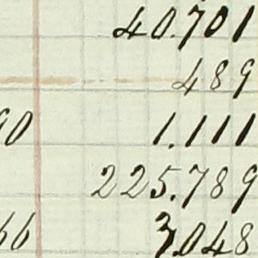 40.701
489
90 1.111
225.789
66 3.048